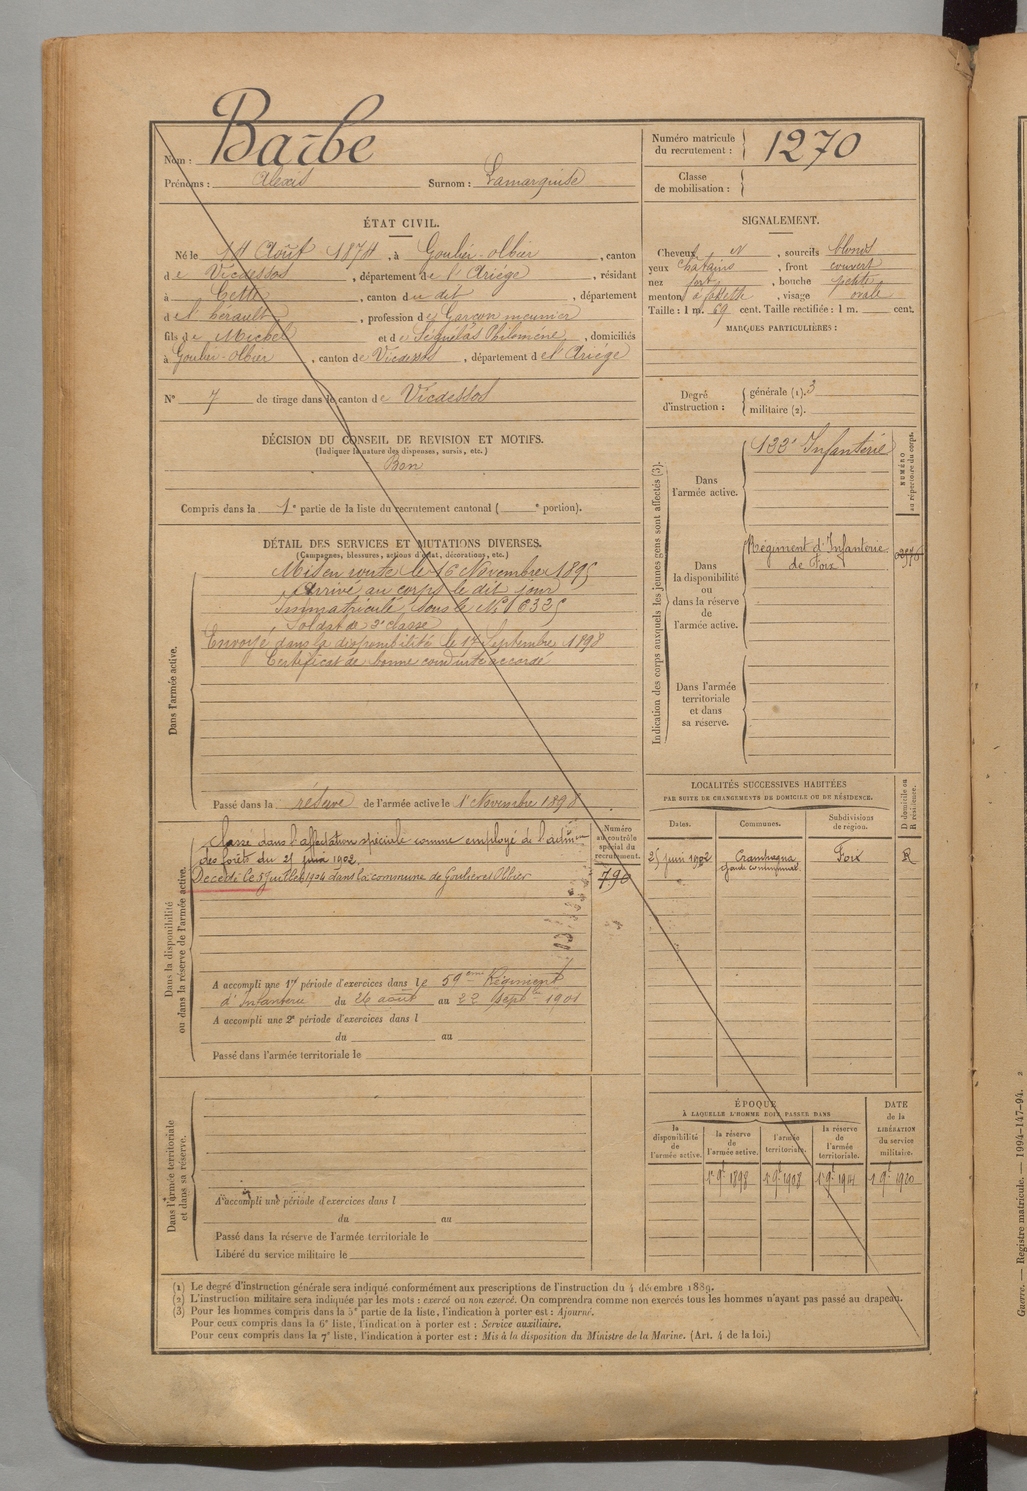 Nom : Barbe
Prénoms : Alexis Surnom : Lamarquise
Numéro matricule du recrutement : 1270
Classe de mobilisation :
ÉTAT CIVIL.
Né le 14 Août 1874, à Goulier-olbier, canton
de Vicdessos, département de l'Ariège, résidant
à Cette, canton du dit, département
de l'hérault, profession de Garçon meunier
fils de Michel et de Séguélas Philomène, domiciliés
à Goulier-olbier, canton de Vicdessos, département de l'Ariège
N° 7 de tirage dans le canton de Vicdessos
DÉCISION DU CONSEIL DE REVISION ET MOTIFS.
(Indiquer la nature des dispenses, sursis, etc.)
Bon
Compris dans la 1e partie de la liste du recrutement cantonal ( e portion).
SIGNALEMENT.
Cheveux N, sourcils blonds
yeux chatains, front couvert
nez fort, bouche petite
menton à fossette, visage ovale
Taille : 1 m. 69 cent. Taille rectifiée : 1 m. cent.
MARQUES PARTICULIÈRES :
Degré d'instruction : générale (1). 3
militaire (2).
DÉTAIL DES SERVICES ET MUTATIONS DIVERSES.
(Campagnes, blessures, actions d'éclat, décorations, etc.)
Dans l'armée active.
Mis en route le 16 Novembre 1895
Arrivé au corps le dit jour
Immatriculé sous le N°
Soldat de 2e classe
Envoyé dans la disponibilité le Septembre 1898
Certificat de bonne conduite accordé
Passé dans la réserve de l'armée active le 1er Novembre 1898
Indication des corps auxquels les jeunes gens sont affectés (3).
NUMÉRO au répertoire du corps.
Dans l'armée active.
133e Infanterie
Dans la disponibilité ou dans la réserve de l'armée active.
Régiment d'Infanterie
de Foix
Dans l'armée territoriale et dans sa réserve.
Dans la disponibilité ou dans la réserve de l'armée active.
Classé dans l'affectation spéciale comme employé de l'admon
des forêts du 25 juin 1902.
Décédé le 5 Juillet 1904 dans la commune de Goulier et Olbier
Numéro au contrôle spécial du recrutement.
790
A accompli une 1re période d'exercices dans le 59eme Régiment
d'Infanterie du 26 août au 22 Septbre 1901
A accompli une 2e période d'exercices dans l
du au
Passé dans l'armée territoriale le
LOCALITÉS SUCCESSIVES HABITÉES
PAR SUITE DE CHANGEMENTS DE DOMICILE OU DE RÉSIDENCE.
Dates. Communes. Subdivisions de region. D domicile ou R résidence.
25 juin 1902 Crampagna Foix R
garde communal
Dans l'armée territoriale et dans sa réserve.
A accompli une période d'exercices dans l
du au
Passé dans la réserve de l'armée territoriale le
Libéré du service militaire le
ÉPOQUE
À LAQUELLE L'HOMME DOIT PASSER DANS
DATE de la LIBÉRATION du service militaire.
la disponibilité de l'armée active. la réserve de l'armée active. l'armée territoriale. la réserve de l'armée territoriale.
1er 9bre 1898 1er 9bre 1908
(1) Le degré d'instruction générale sera indiqué conformément aux prescriptions de l'instruction du 4 décembre 1889.
(2) L'instruction militaire sera indiquée par les mots : exercé ou non exercé. On comprendra comme non exercés tous les hommes n'ayant pas passé au drapeau.
(3) Pour les hommes compris dans la 5e partie de la liste, l'indication à porter est : Ajourné.
Pour ceux compris dans la 6e liste, l'indication à porter est : Service auxiliaire.
Pour ceux compris dans la 7e liste, l'indication à porter est : Mis à la disposition du Ministre de la Marine. (Art. 4 de la loi.)
Guerre. — Registre matricule. — 1994-147-94. 2